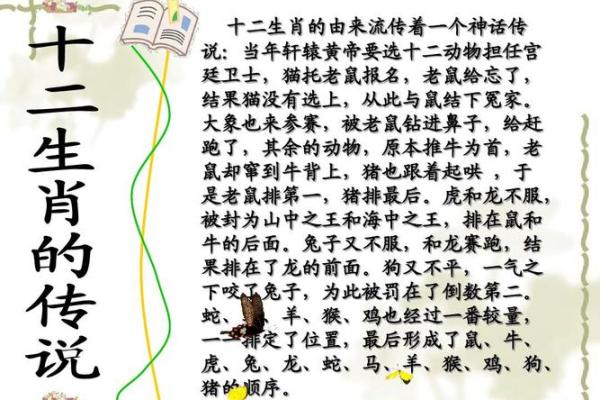 十二生肖的传说
十二生肖的由来流传着一个神话传
说：当年轩辕黄帝要选十二动物担任宫
廷卫士，猫托老鼠报名，老鼠给忘了，
结果猫没有选上，从此与鼠结下冤家。
大象也来参赛，被老鼠钻进鼻子，给赶
跑了，其余的动物，原本推牛为首，老
鼠却窜到牛背上，猪也跟着起哄 ，于
是老鼠排第一，猪排最后。虎和龙不服，
被封为山中之王和海中之王，排在鼠和
牛的后面。兔子又不服，和龙赛跑，结
果排在了龙的前面。狗又不平，一气之
下咬了兔子，为此被罚在了倒数第二。
蛇、 、羊、猴、鸡也经过一番较量，
一 排定了位置，最后形成了鼠、牛、
虎、兔、龙、蛇、马、羊、猴、鸡、狗、
猪的顺序。